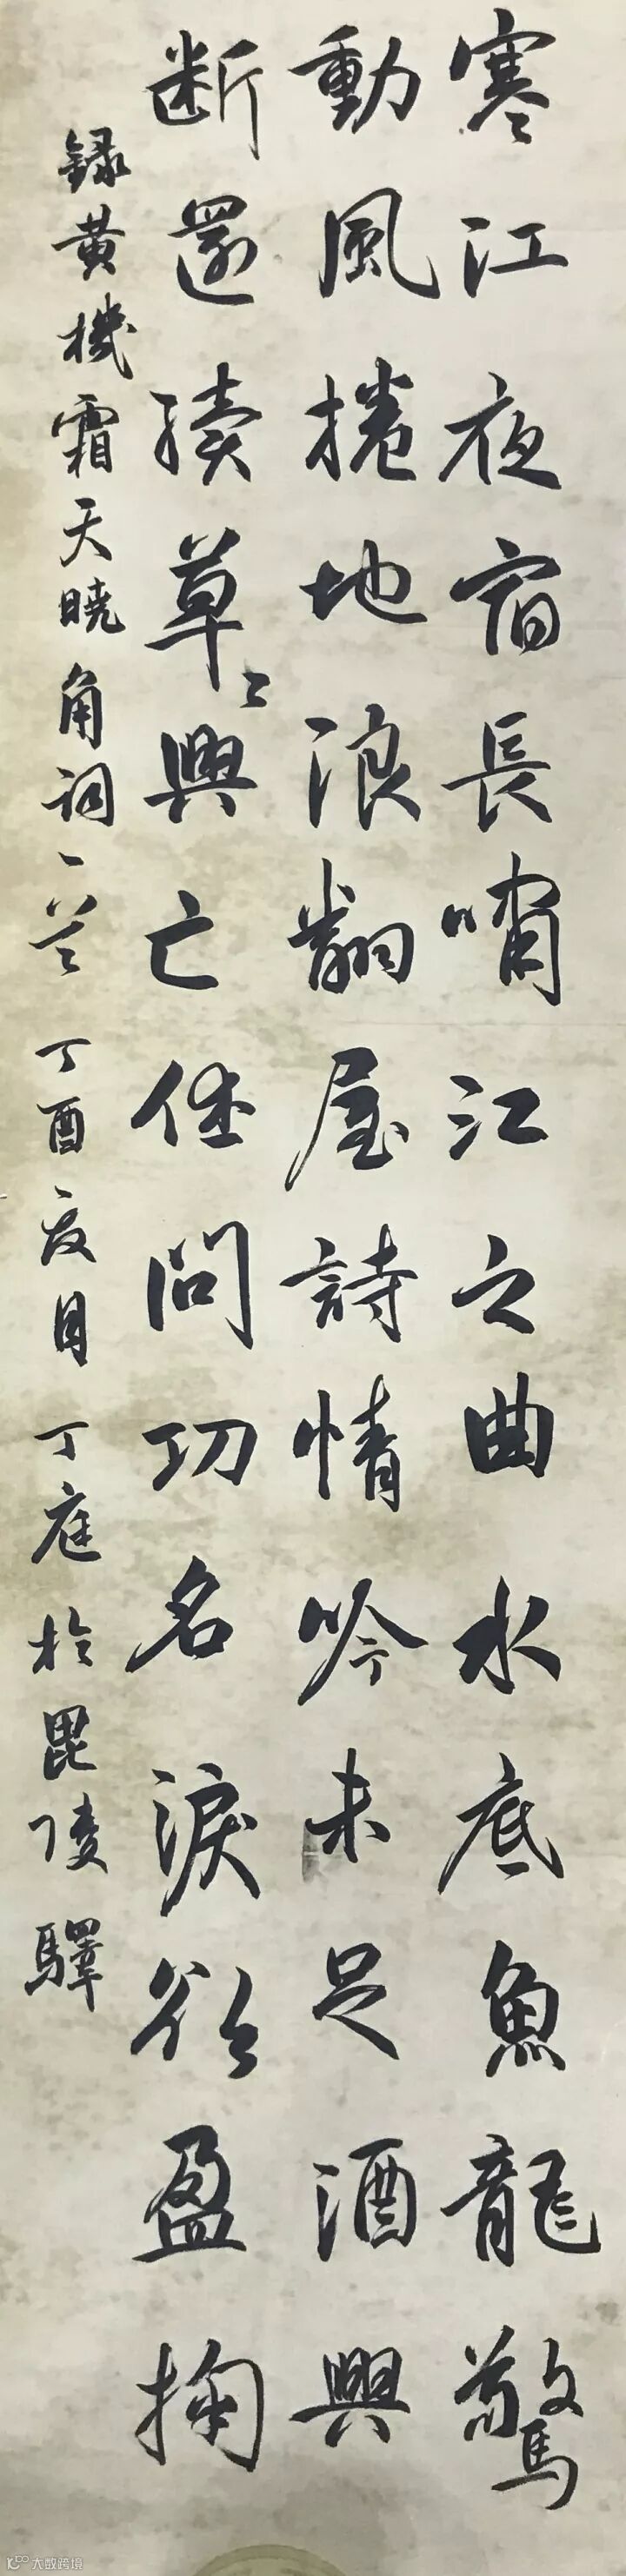 寒江夜宿長嘯江之曲水底魚龍驚
動風捲地浪翻屋詩情吟未足酒興
断還續草〻興亡休問功名淚欲盈掬
録黄機霜天曉角詞一首 丁酉夏月 丁庭於毘陵驛
大数跨境